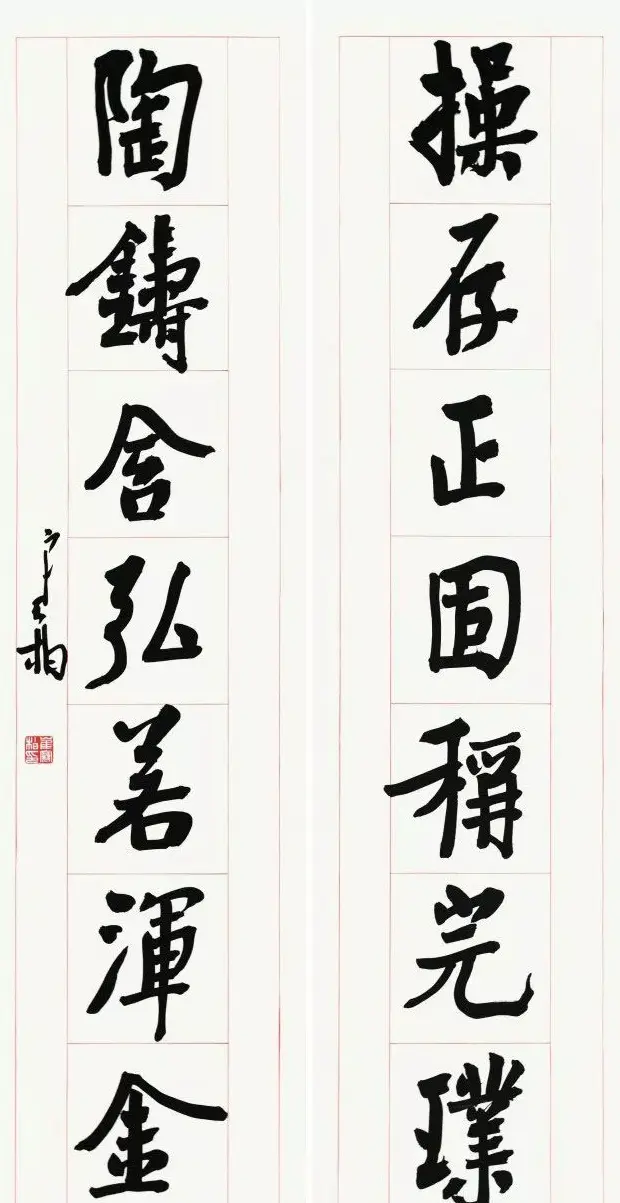 操存正固稱完璞
陶鑄含弘若渾金
寒柏